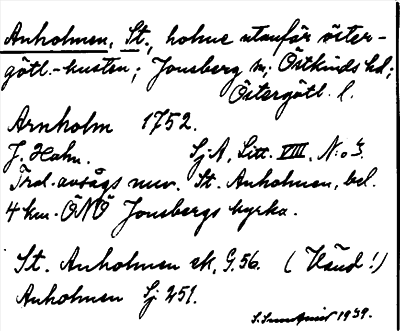 Anholmen, St., holme utanför öster-
götl.-kusten; Jonsberg sn; Östkinds hd;
Östergötl. l.
Arnholm 1752.
J. Hahn. SjA, Litt. VIII, N:o 3.
Trol. avsågs nuv. St. Anholmen, bel.
4 km. ÖNÖ Jonsbergs kyrka.
St. Anholmen ek. G.56. (Händ!)
Anholmen Sj 251.
1939.